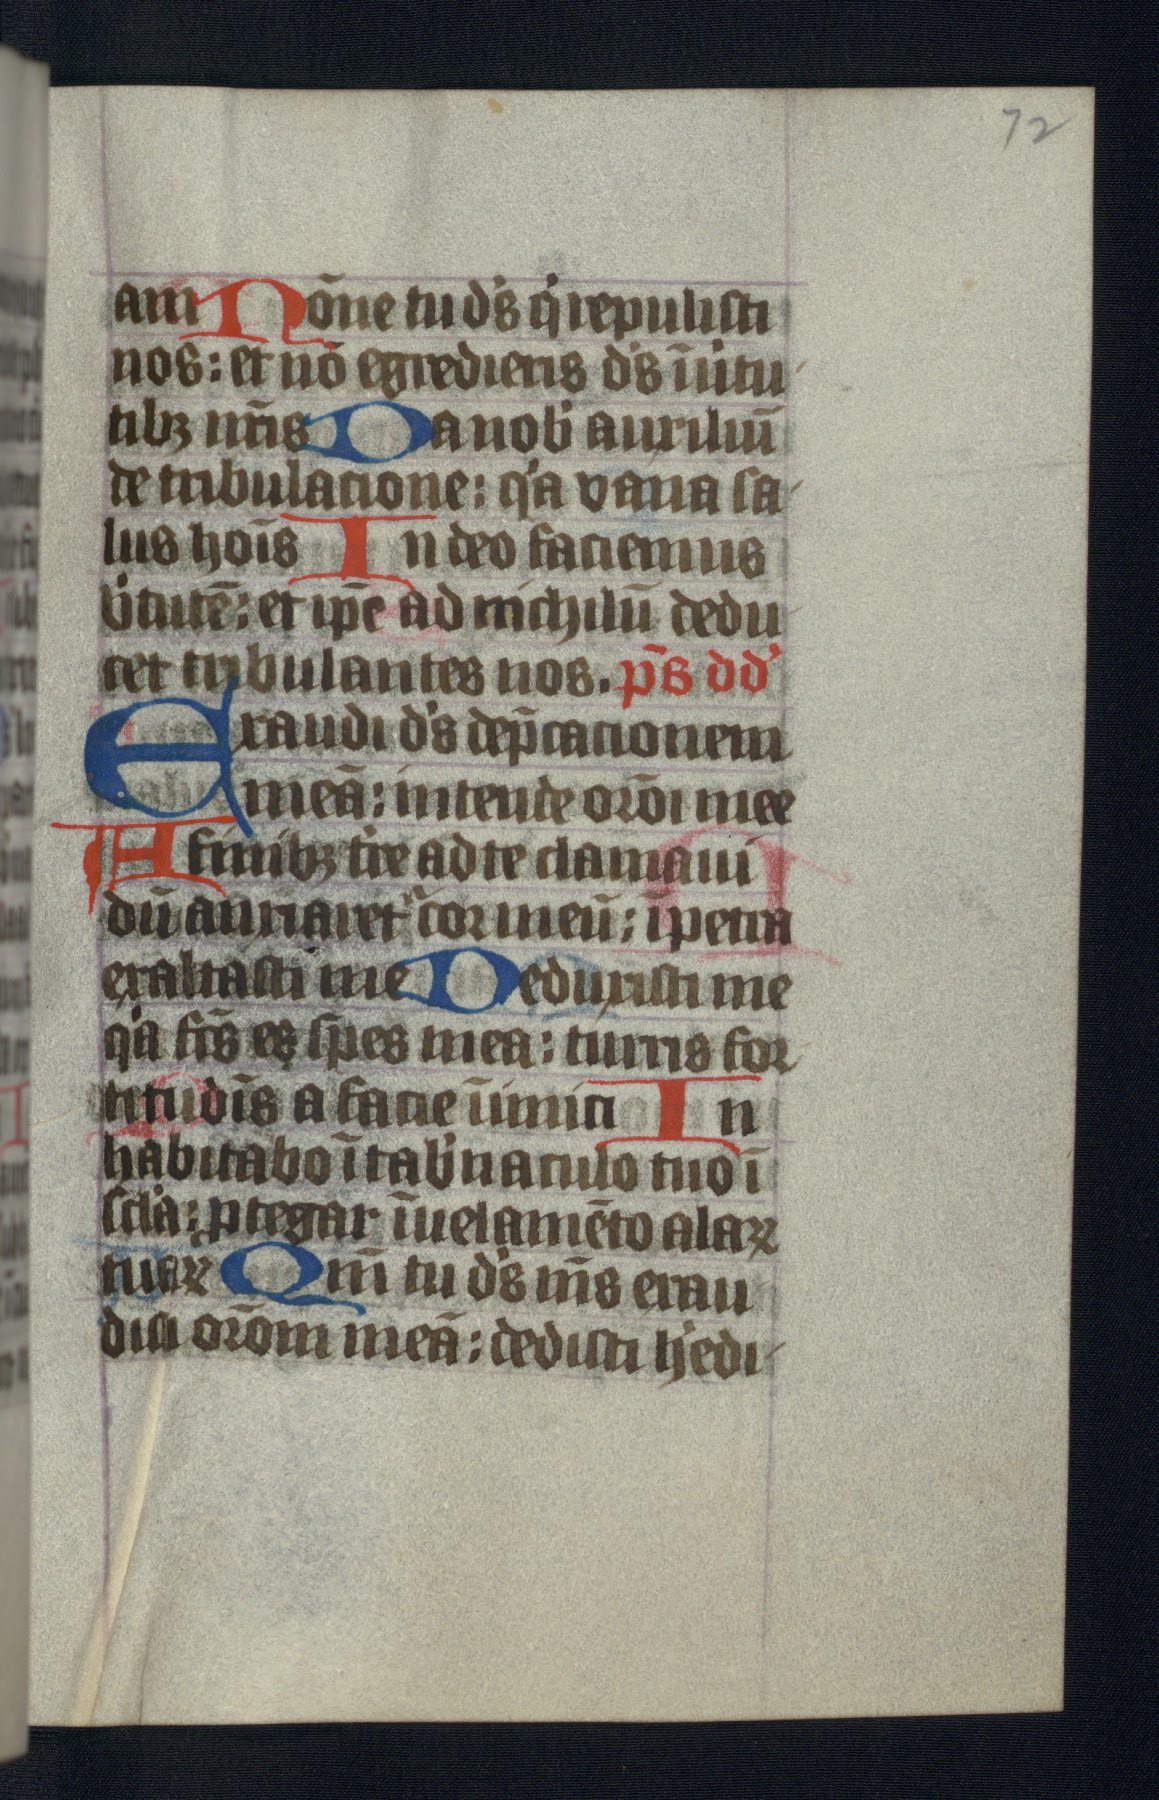 72
am Nōne tu d's q' repulisti
nos: et nō egredieris d's ī v'tu
tibꝫ nr̄is Da nob' auxiliū
de tribulacione: q'a vana sa
lus hoīs In deo faciemus
v'tutē: et ip̄e ad nichilū dedu
cet tribulantes nos. p̄s dd'
Exaudi d's dep̄cacionem
meā: intende orōi mee
A finibꝫ t're ad te clamaui
dū anxiaret' cor meū: ī petra
exaltasti me Deduxisti me
q'a fc̄s es spes mea: turris for
titudīs a facie inimici In
habitabo ī tab'naculo tuo ī
scl'a: ptegar ī velamēto alaꝝ
tuaꝝ Qm̄ tu d's m̄s exau
disti orōm meā: dedisti h'edi